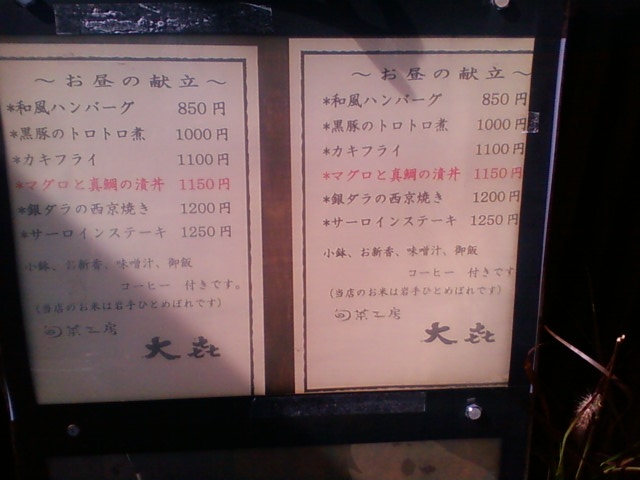 ～お昼の献立～
*和風ハンバーグ 850円
*黒豚のトロトロ煮 1000円
*カキフライ 1100円
*マグロと真鯛の漬丼 1150円
*銀ダラの西京焼き 1200円
*サーロインステーキ 1250円
小鉢、お新香、味噌汁、御飯
コーヒー 付きです。
(当店のお米は岩手ひとめぼれです)
旬菜工房
大㐂
～お昼の献立～
*和風ハンバーグ 850円
*黒豚のトロトロ煮 1000円
*カキフライ 1100円
*マグロと真鯛の漬丼 1150円
*銀ダラの西京焼き 1200円
*サーロインステーキ 1250円
小鉢、お新香、味噌汁、御飯
コーヒー 付きです
(当店のお米は岩手ひとめぼれです)
旬菜工房
大㐂